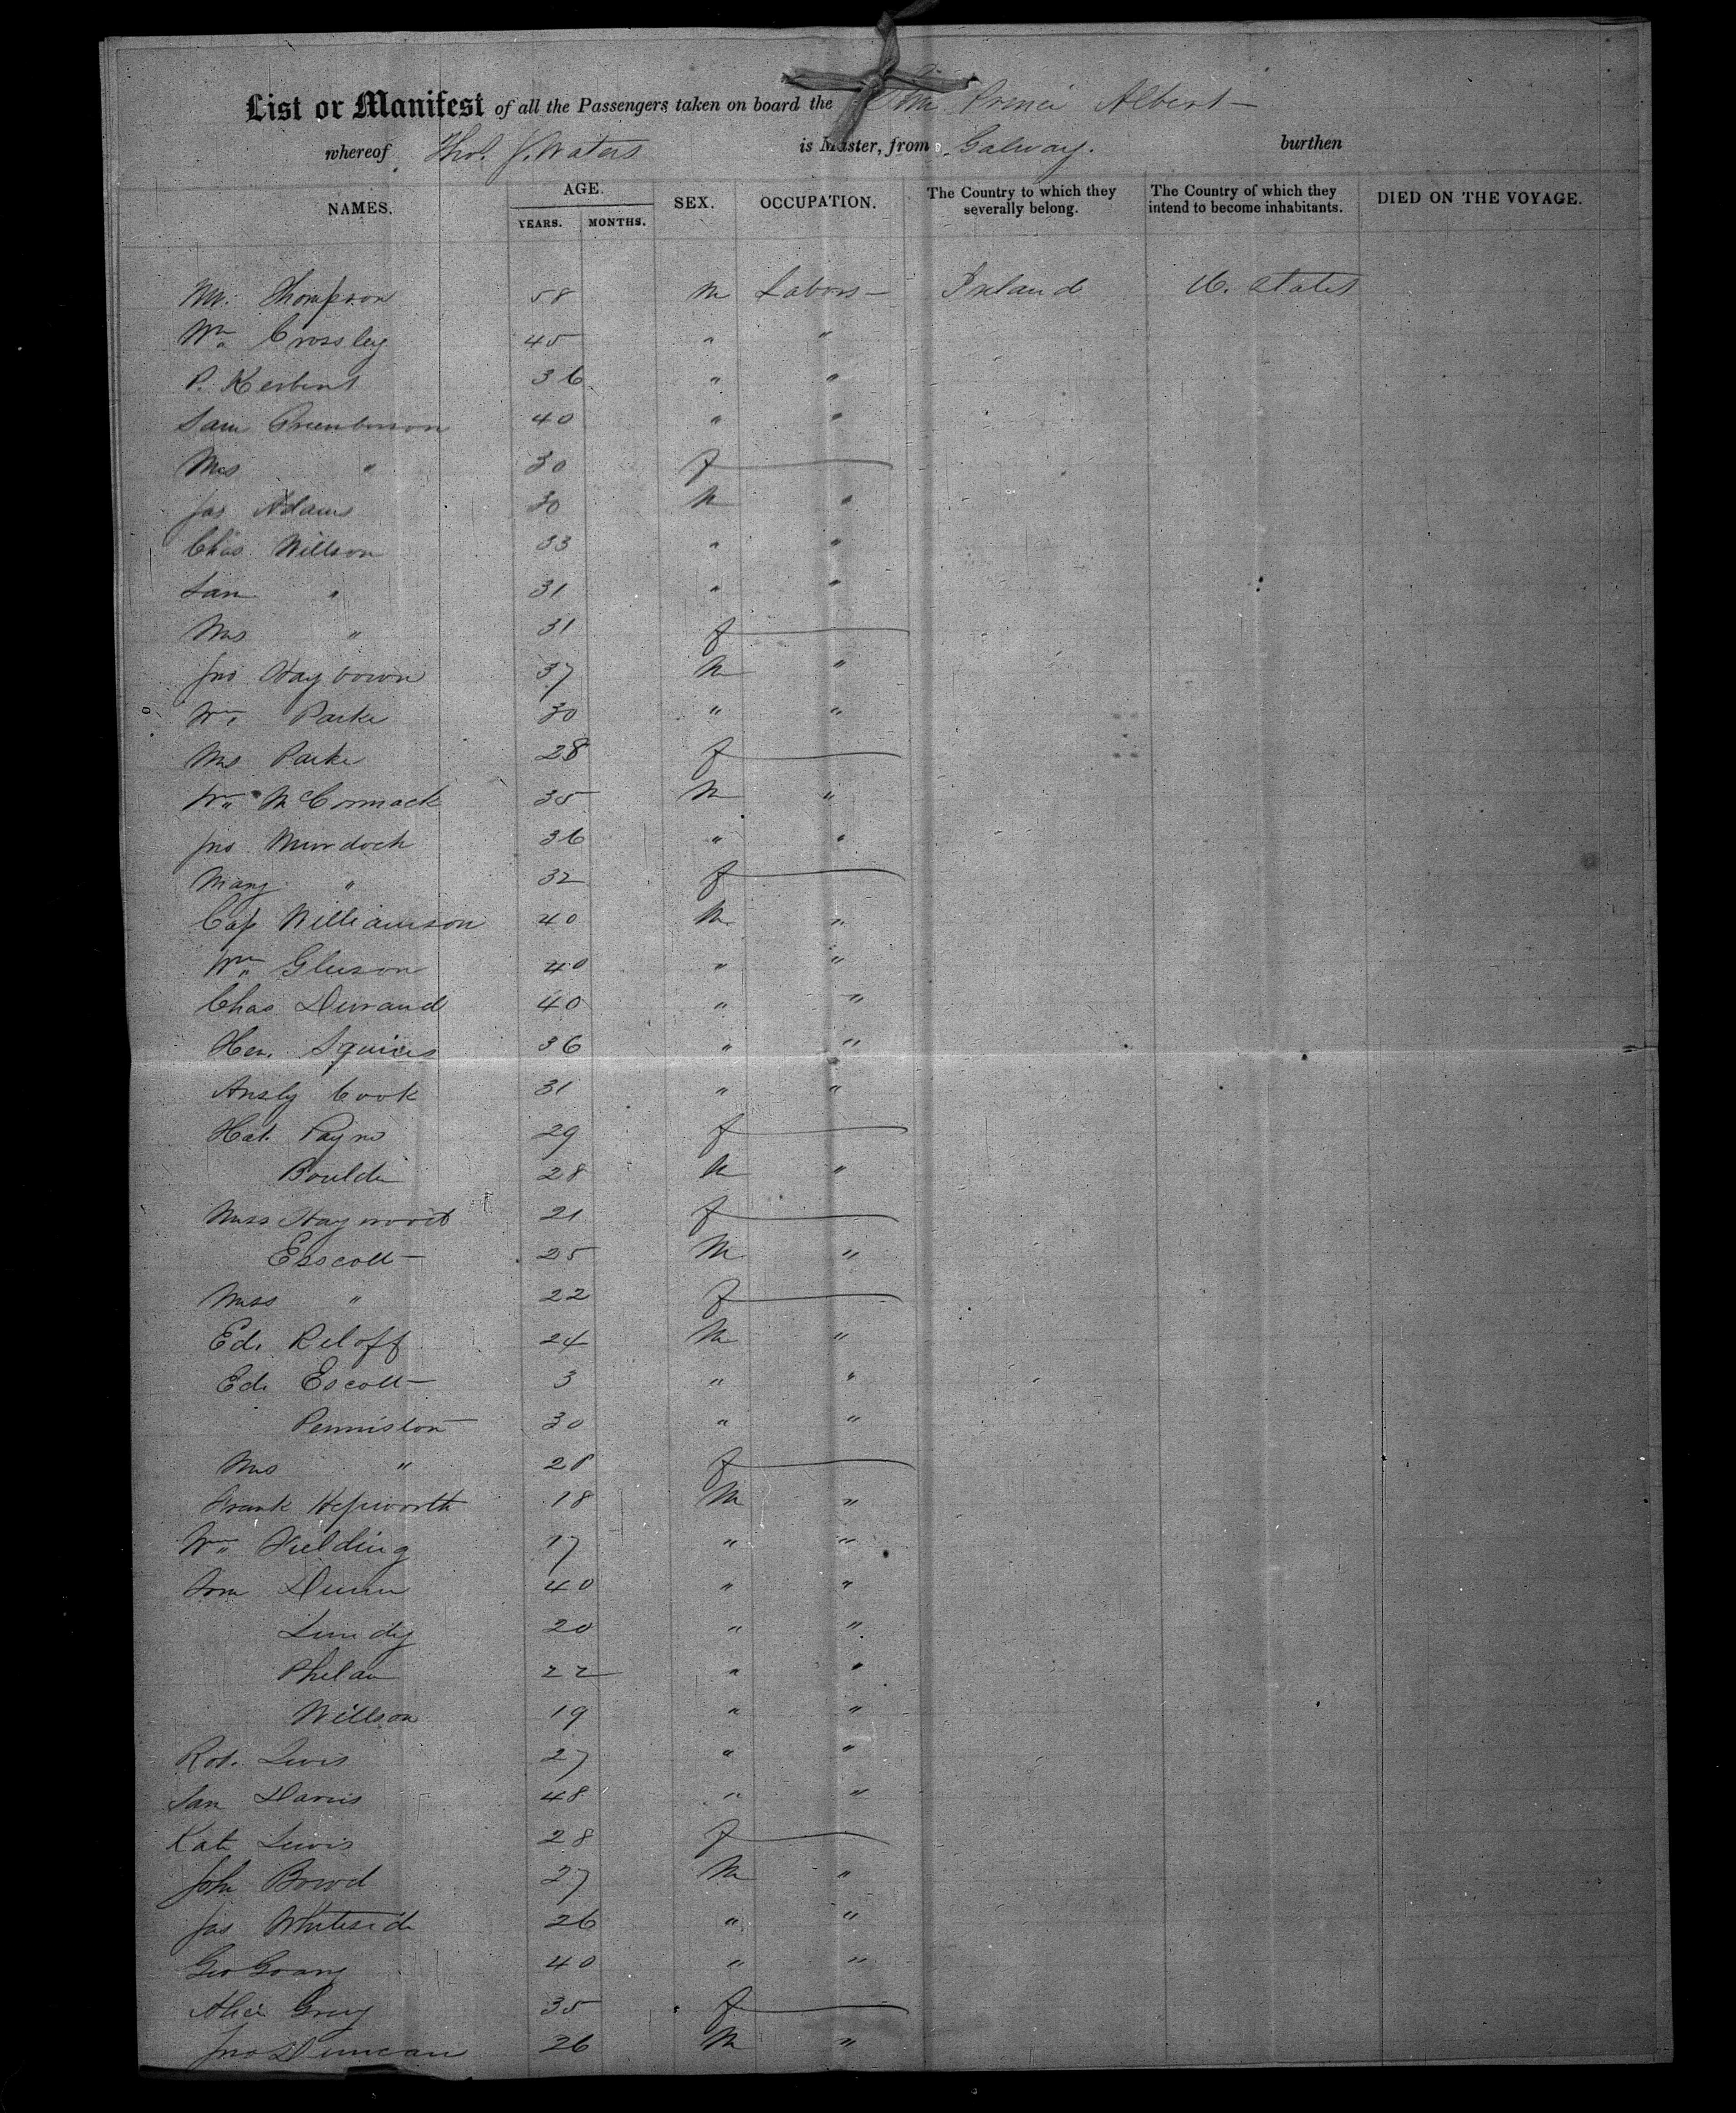 List or Manifest of all the Passengers taken on board the Str Prince Albert —
whereof Thos. J. Waters is Master, from Galway. burthen
NAMES. AGE. YEARS. MONTHS. SEX. OCCUPATION. The Country to which they severally belong. The Country of which they intend to become inhabitants. DIED ON THE VOYAGE.
Thompson 58 M Labors — Ireland U. States
Wm Crossley 45 " "
P. 36 " "
Sam 40 " "
Mrs " 30 f
Jas Adams 30 M "
Chas Willson 33 " "
Sam " 31 " "
Mrs " 31 f
Jno 37 M "
Wm Parke 30 " "
Mrs Parke 28 f
Wm McCormack 35 M "
Jno Murdoch 36 " "
Mary " 32 f
Cap Williamson 40 M "
Wm Gleeson 40 " "
Chas Durand 40 " "
Hen. Squires 36 " "
Ansly Cook 31 " "
Hat. Payne 29 f
28 M "
Miss 21 f
Esscott — 25 M "
Miss " 22 f
Ed. Reloff 24 M "
Ed. Escott — 3 " "
Penniston 30 " "
Mrs " 28 f
Frank Hepworth 18 M "
Wm Fielding 17 " "
Tom Dunn 40 " "
Lundy 20 " "
Phelan 22 " "
Willson 19 " "
Rob. Lewis 27 " "
Sam Davis 48 " "
Kate Lewis 28 f
John 27 M "
Jas Whiteside 26 " "
Geo 40 " "
Alice Grey 35 f
Jno Duncan 26 M "